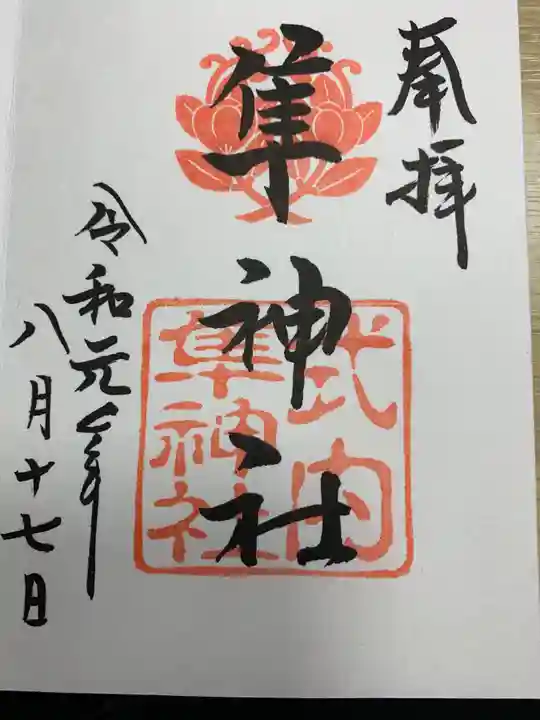 奉拝
隼神社
式内
隼神社
令和元年
八月十七日